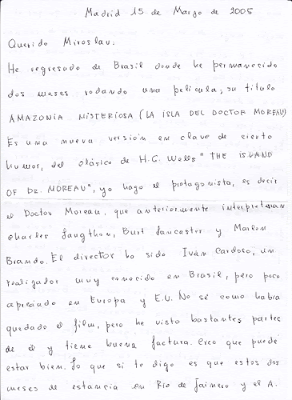 Madrid 15 de Marzo de 2005
Querido Miroslav:
He regresado de Brasil donde he permanecido
dos meses rodando una película, su título
AMAZONIA MISTERIOSA (LA ISLA DEL DOCTOR MOREAU)
Es una nueva versión en clave de cierto
humor, del clásico de H.G. Wells "THE ISLAND
OF DR. MOREAU", yo hago el protagonista, es decir
el Doctor Moreau, que anteriormente interpretaran
Charles Laughton, Burt Lancaster y Marlon
Brando. El director ha sido Iván Cardoso, un
realizador muy conocido en Brasil, pero poco
apreciado en Europa y E.U. No sé como habrá
quedado el film, pero he visto bastantes partes
de él y tiene buena factura. Creo que puede
estar bien. Lo que si te digo es que estos dos
meses de estancia en Río de Janeiro y el A.